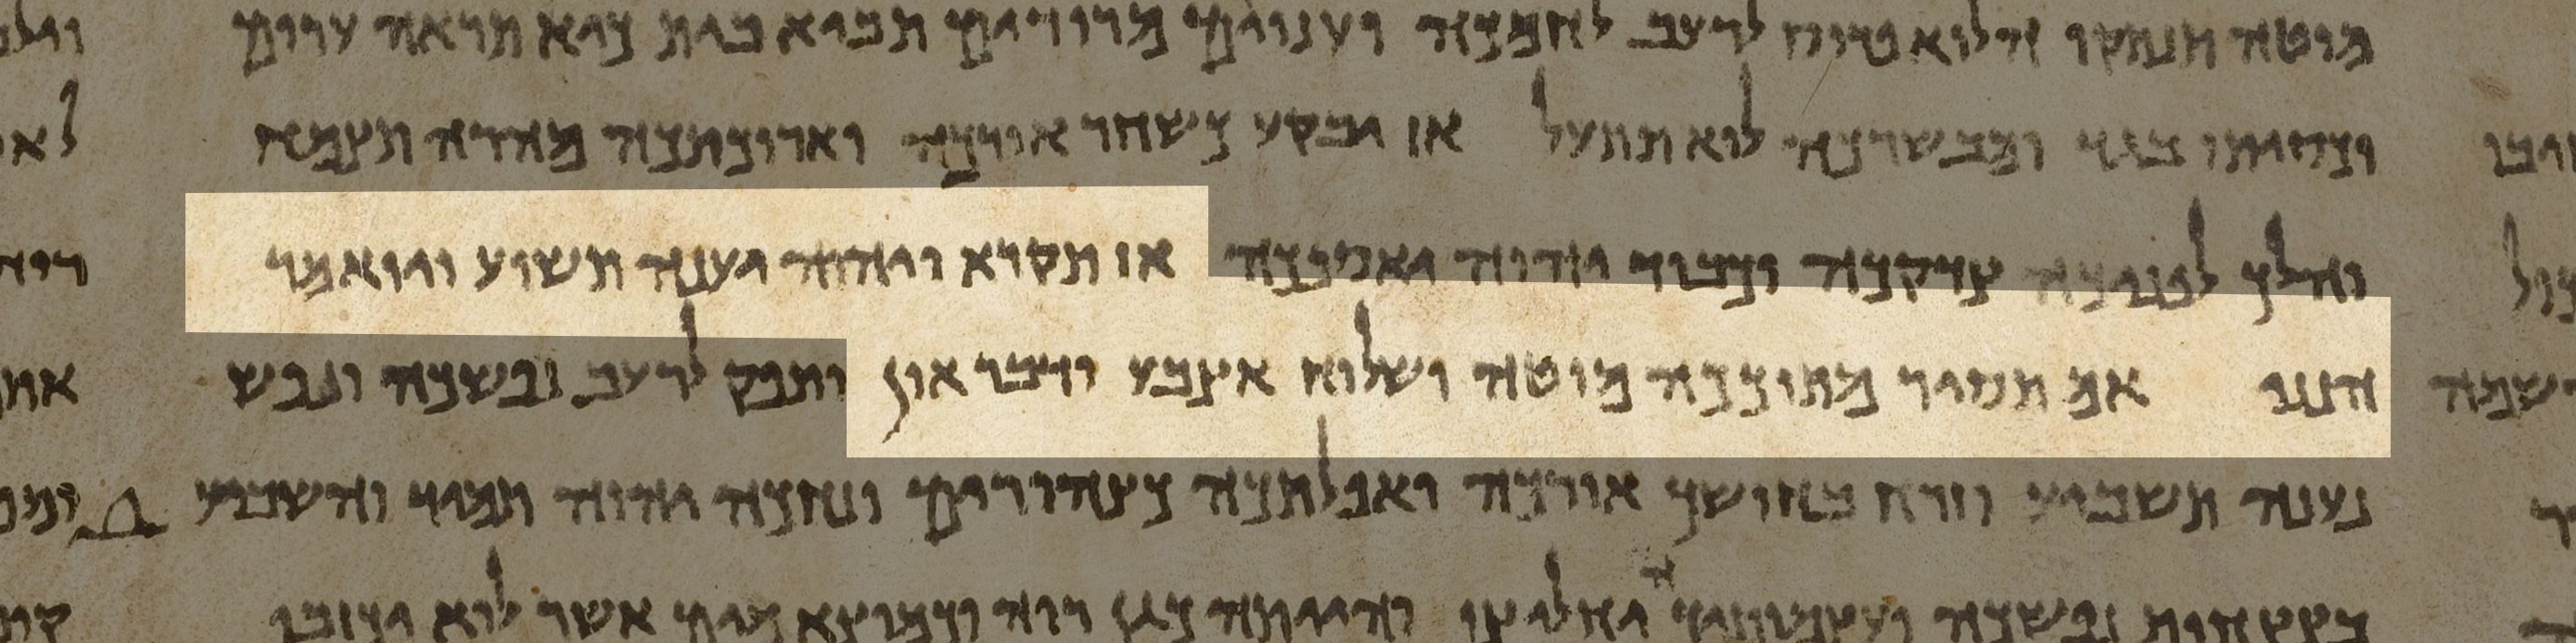 מוטה תנתקו הלוא פרוס לרעב לחמכה ועניים מרודים תביא בית כיא תראה ערום
וכסיתו בגד ומבשרכה לוא תתעלם אז יבקע כשחר אורכה וארוכתכה מהרה תצמח
והלך לפניכה צדקכה וכבוד יהוה יאספכה אז תקרא ויהוה יענה תשוע ויואמר
הנני אמ תסיר מתוככה מוטה ושלוח אצבע ודבר און ותפק לרעב נפשכה ונפש
נענה תשביע וזרח בחושך אורכה ואפלתכה כצהורים ונחכה יהוה תמיד והשביע
נפשכה ועצמותיך יחליצו והייתה כגן רוה וכמוצא מים אשר לוא יכזבו